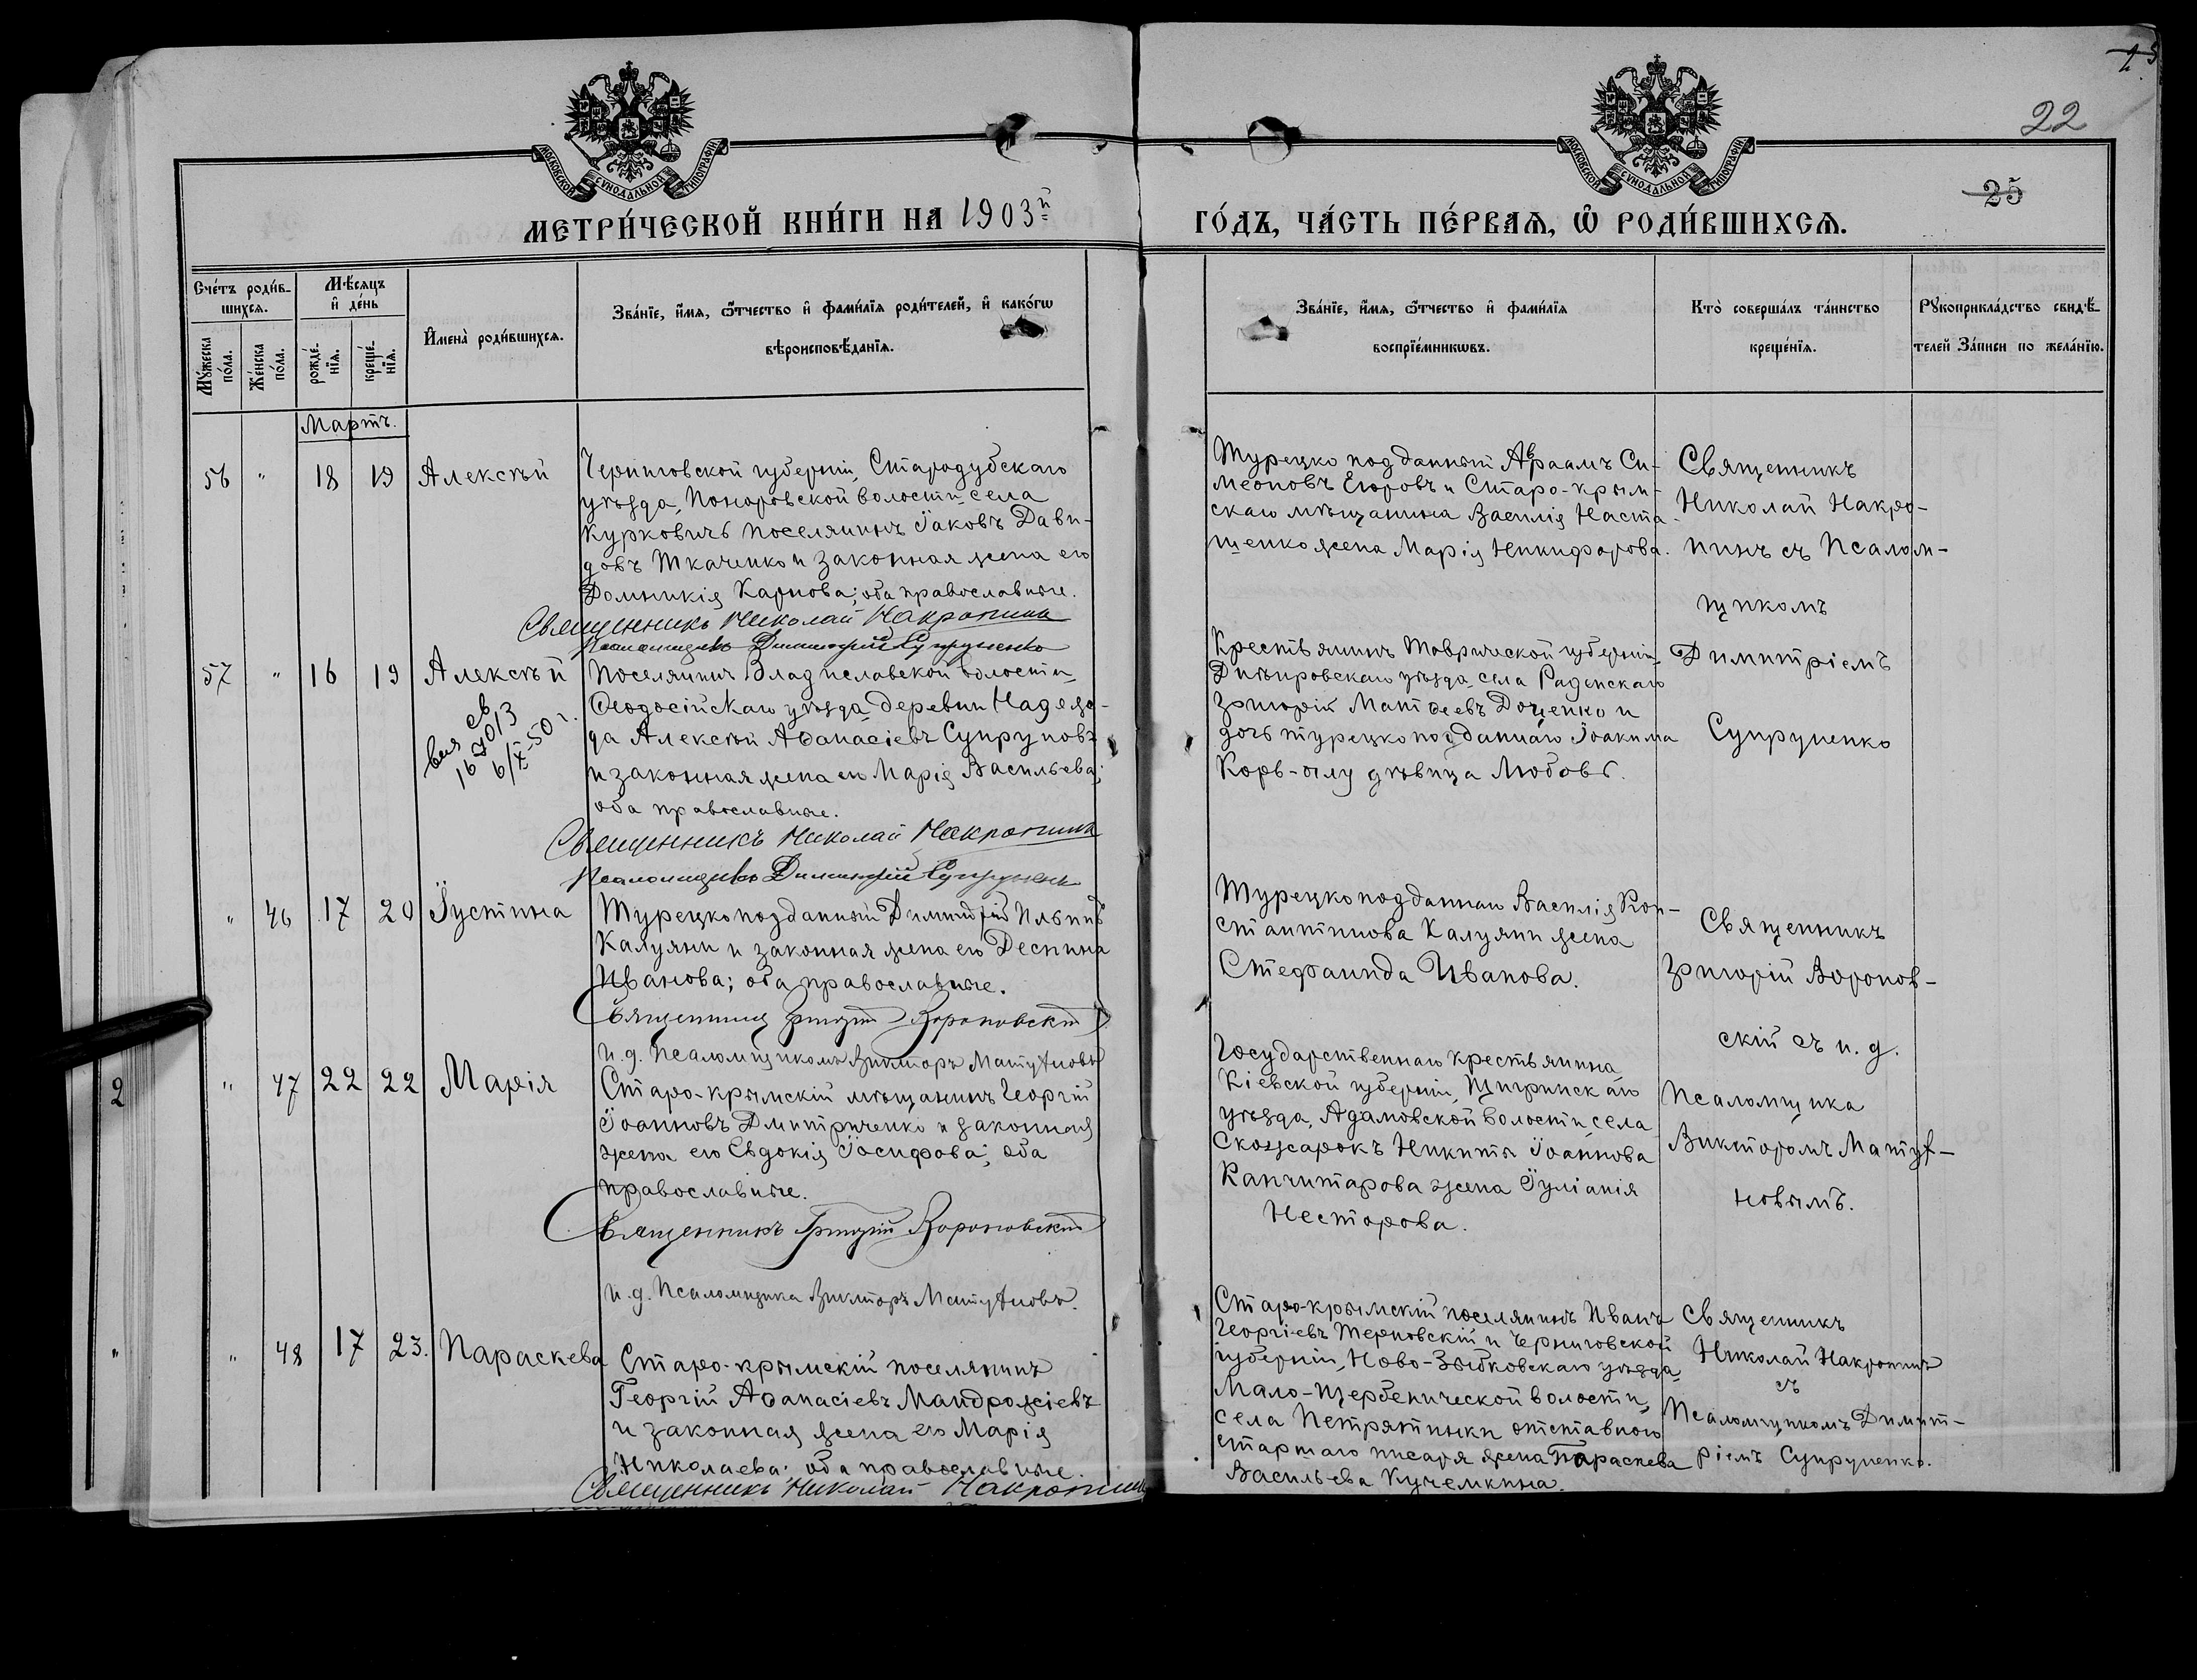 22
25
МОСКОВСКОЙ СУНОДАЛЬНОЙ ТИПОГРАФІИ
МОСКОВСКОЙ СУНОДАЛЬНОЙ ТИПОГРАФІИ
МЕТРИ́ЧЕСКОЙ КНИ́ГИ НА 1903й
ГО́ДЪ, ЧА́СТЬ ПЕ́РВАЯ, Ѡ РОДИ́ВШИХСЯ.
Сче́тъ роди́в-
шихся.
Мꙋ́жеска по́ла.
Же́нска по́ла.
Мѣ́сяцъ
и҆ де́нь
рожде́-
нїя.
креще́-
нїя.
И҆мена̀ роди́вшихся.
Зва́нїе, и҆́мя, ѻ҆́тчество и҆ фами́лїя роди́телей, и҆ како́гѡ
вѣроисповѣ́данїя.
Зва́нїе, и҆́мя, ѻ҆́тчество и҆ фами́лїя
воспрїе́мникѡвъ.
Кто̀ соверша́лъ та́инство
креще́нїя.
Рꙋкоприкла́дство свидѣ́-
телей за́писи по жела́нїю.
Мартъ.
56 " 18 19 Алексѣй
Черниговской губерніи, Стародубскаго
уѣзда, Поноровской волости, села
Курковичъ поселянинъ Іаковъ Дави-
довъ Ткаченко и законная жена его
Домникія Карпова; оба православные.
Священникъ Николай Накропинъ
Псаломщикъ Димитрій Супруненко
Турецко подданный Авраамъ Си-
меоновъ Егоровъ и Старо-крым-
скаго мѣщанина Василія Наста-
щенко жена Марія Никифорова.
Священникъ
Николай Накро-
пинъ съ Псалом-
щикомъ
Димитріемъ
Супруненко
57 " 16 19 Алексѣй
св
167013
6/X-50 г.
Поселянинъ Владиславской волости,
Ѳеодосійскаго уѣзда, деревни Надеж-
да Алексѣй Аѳанасіевъ Супруновъ
и законная жена его Марія Васильева;
оба православные.
Священникъ Николай Накропинъ
Псаломщикъ Димитрій Супруненко
Крестьянинъ Таврической губерніи,
Днѣпровскаго уѣзда, села Раденскаго
Григорій Матѳеевъ Доценко и
дочь турецко подданнаго Іоакима
Корь-оглу дѣвица Любовь.
" 46 17 20 Іустина
Турецкоподданный Димитрій Ильинъ
Калуяни и законная жена его Деспина
Иванова; оба православные.
Священникъ Григорій Вороновскій
И.д. Псаломщикомъ Викторъ Матуѳновъ
Турецкоподданнаго Василія Кон-
стантинова Калуяни жена
Стефанида Иванова.
Священникъ
Григорій Воронов-
скій съ и.д.
Псаломщика
Викторомъ Матуѳ-
новымъ.
2
" 47 22 22 Марія
Старо-крымскій мѣщанинъ Георгій
Іоанновъ Дмитриченко и законная
жена его Евдокія Іосифова; оба
православные.
Священникъ Григорій Вороновскій
И.д. Псаломщика Викторъ Матуѳновъ.
Государственнаго крестьянина
Кіевской губерніи, Чигиринскаго
уѣзда, Адамовской волости, села
Скожарокъ Никиты Іоаннова
Канчитарова жена Іуліанія
Несторова.
" " 48 17 23. Параскева
Старо-крымскій поселянинъ
Георгій Аѳанасіевъ Мандрожіевъ
и законная жена его Марія
Николаева; оба православные.
Священникъ Николай Накропинъ
Старо-крымскій поселянинъ Иванъ
Георгіевъ Терновскій и Черниговской
губерніи, Ново-Зыбковскаго уѣзда,
Мало-Щербинической волости,
села Петрятинки отставного
старшаго писаря жена Параскева
Васильева Кучемкина.
Священникъ
Николай Накропинъ
съ
Псаломщикомъ Димит-
ріемъ Супруненко.